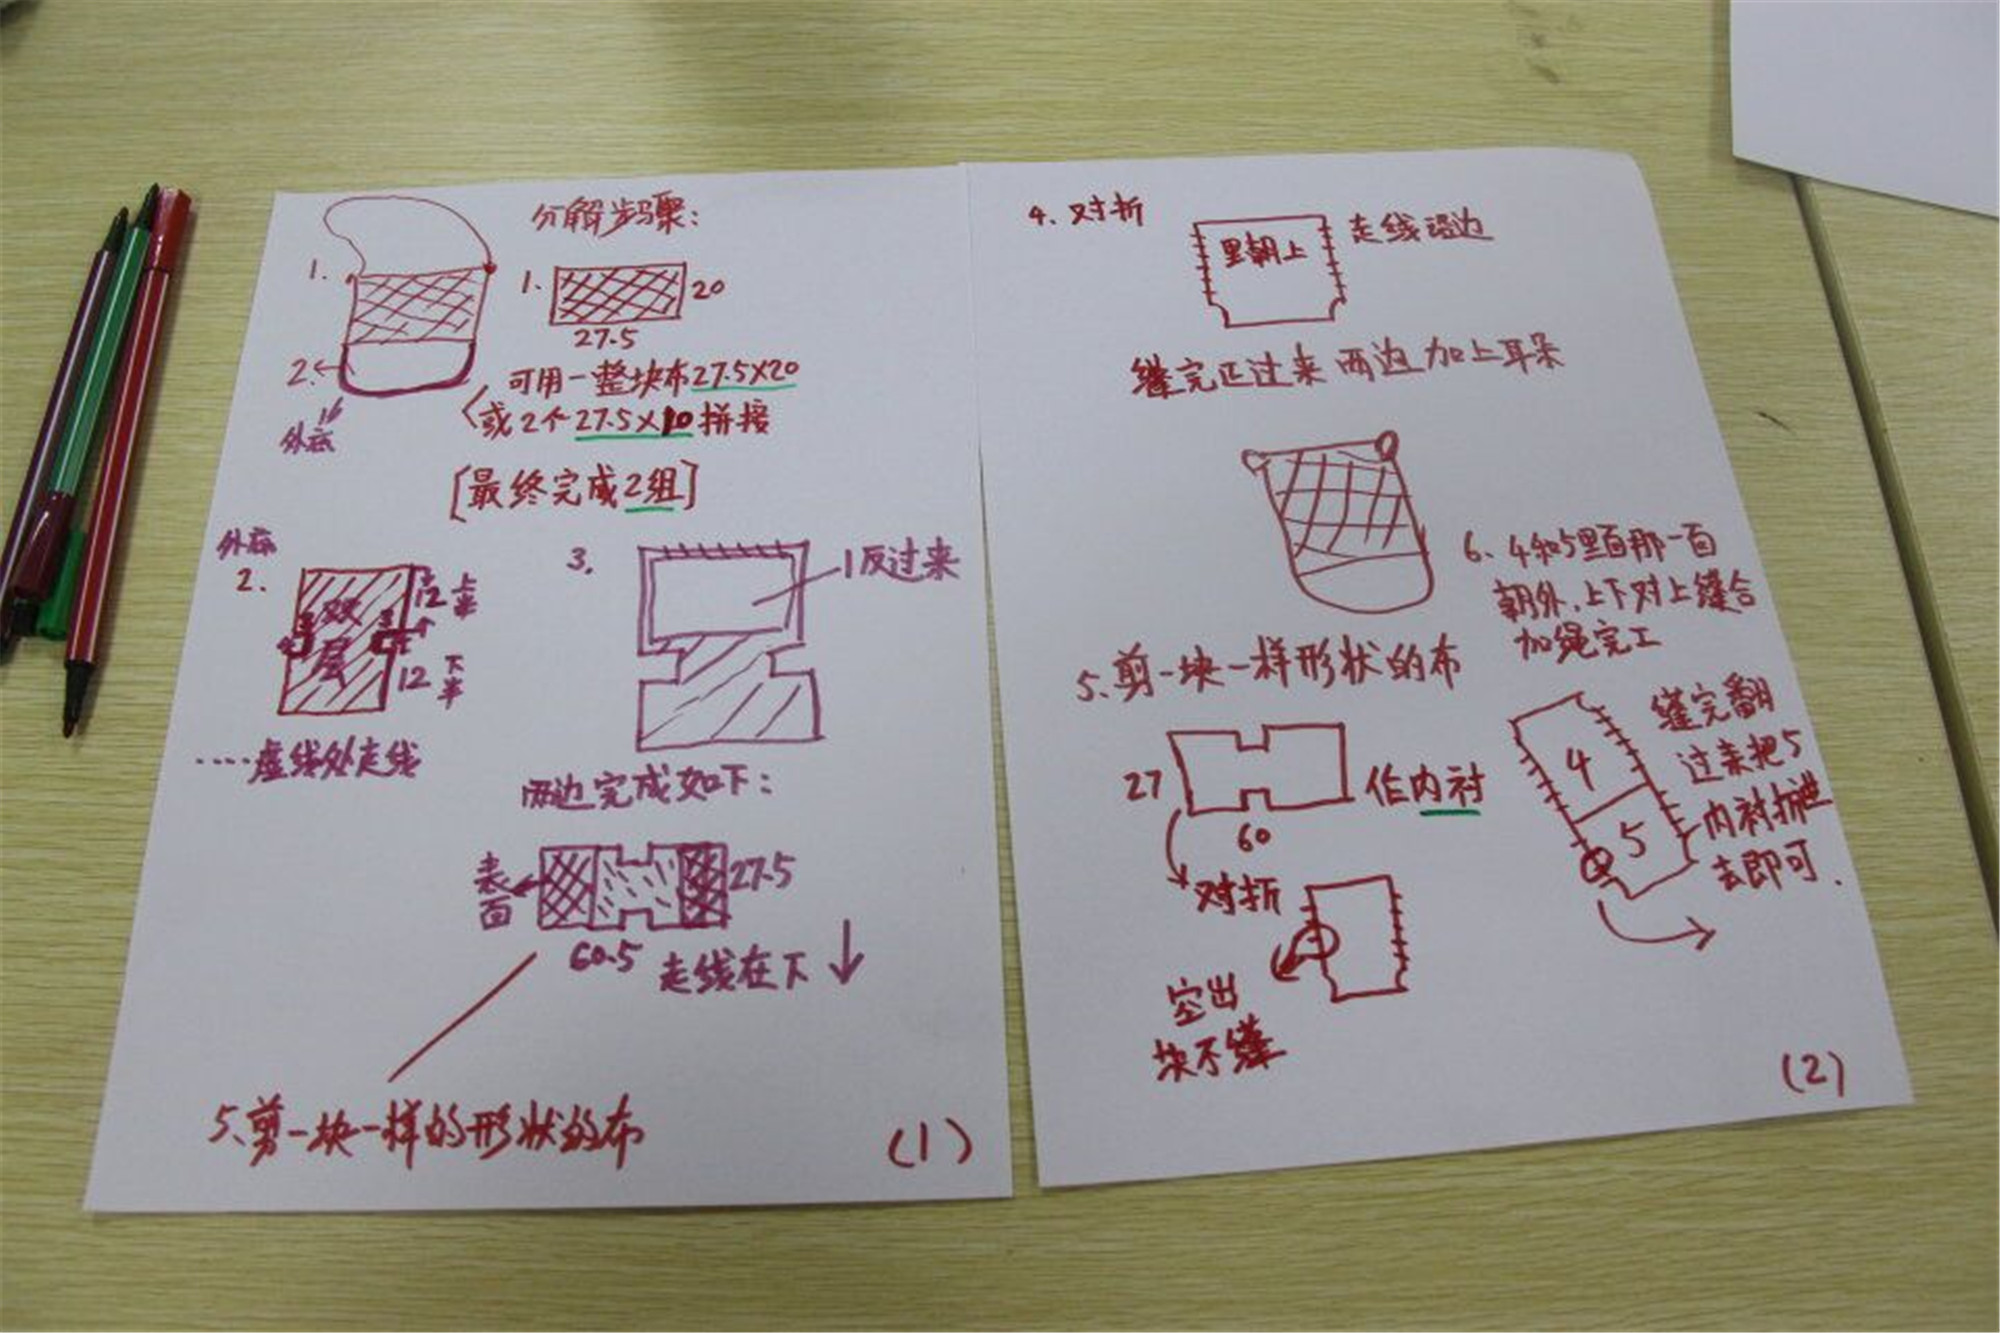 分解步骤:
1.
2.
外底
1.
20
27.5
可用一整块布27.5X20
或2个27.5X10拼接
[最终完成2组]
外底
2.
双
层
12 上半
12 下半
····虚线处走线
3.
1反过来
两边完成如下:
表面
27.5
60.5
走线在下
5、剪一块一样的形状的布
(1)
4、对折
里朝上
走线
缝完 过来 两边加上耳朵
5、剪一块一样形状的布
27
60
作内衬
对折
空出
块不缝
6、4和5里面那一面
朝外,上下对上缝合
加绳完工
4
5
缝完翻
过来把5
内衬折进
去即可.
(2)